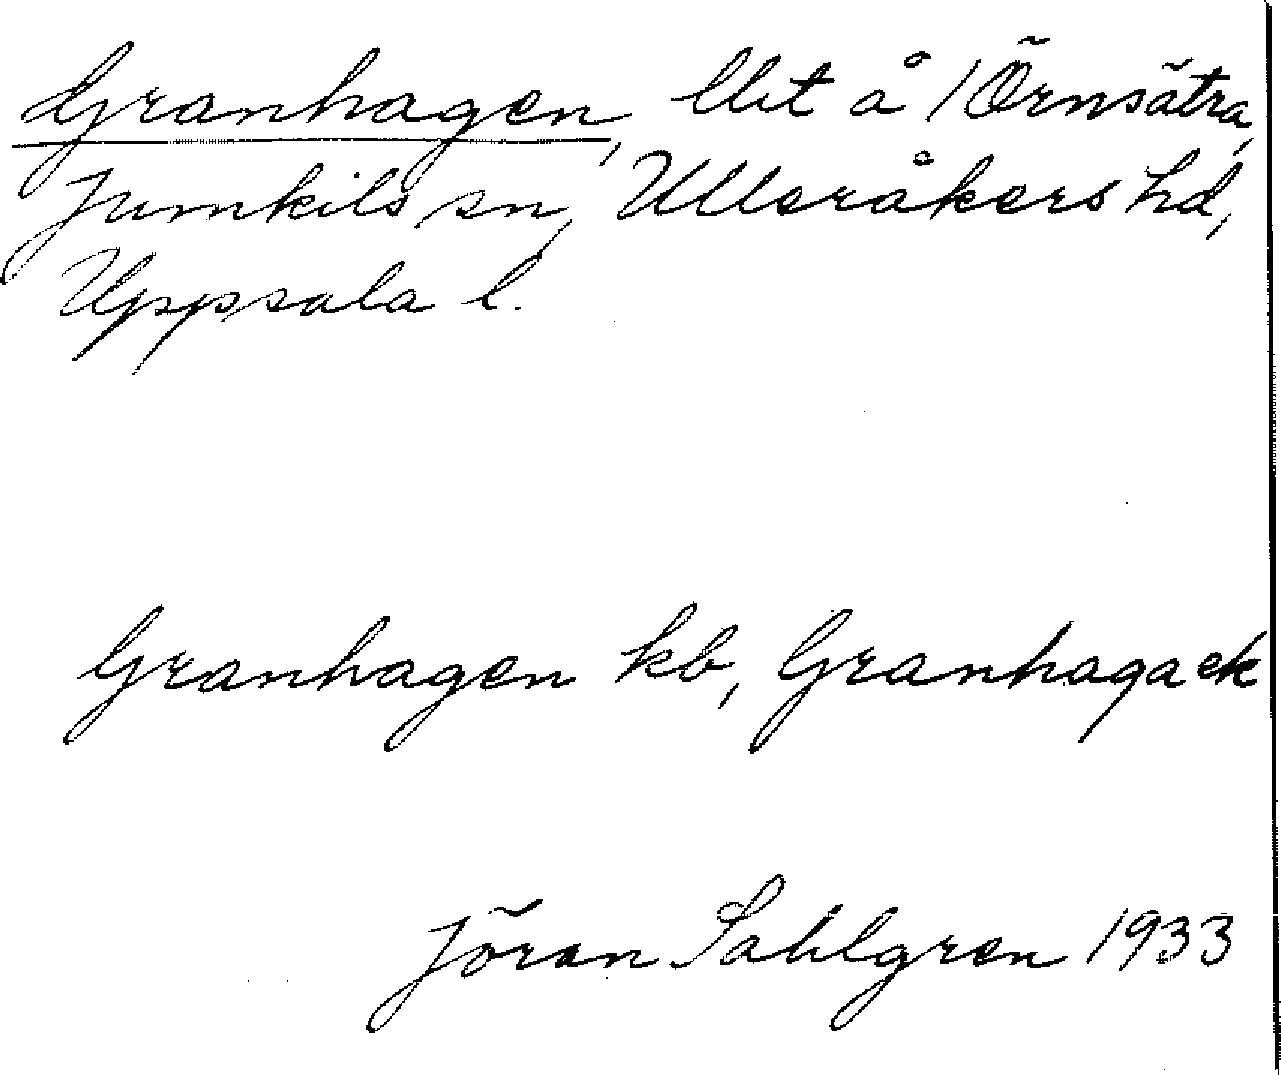 Granhagen, llht å 1 Örnsätra,
Jumkils sn, Ulleråkers hd,
Uppsala l.
Granhagen kb, Granhaga ek
Jöran Sahlgren 1933